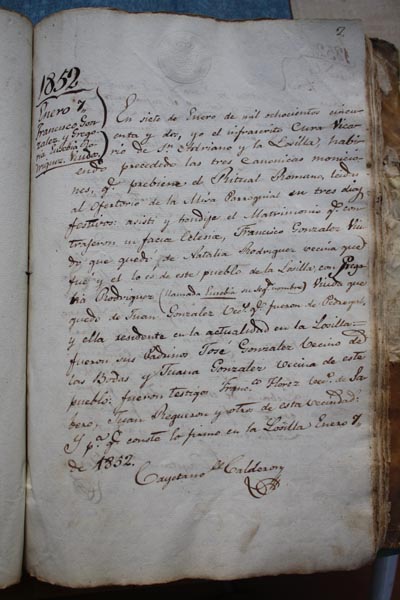 2
1852
Enero 7
Francisco Gon-
zalez y Grego-
ria Eusebia Ro-
driguez. Viudos
En siete de Enero de mil ochocientos cincu-
enta y dos, yo el infraescrito Cura Vica-
rio de Sn Adriano y la Losilla, habi-
endo precedido las tres Canonicas monicio-
nes, qe prebiene el Ritual Romano, leidas
al Ofertorio de la Misa Parroquial en tres dias
festivos: asisti y bendije el Matrimonio qe con-
trageron in facie Eclesie, Francisco Gonzalez Viu-
do que quedó de Natalia Rodriguez vecina que
fué y el lo es de este pueblo de la Losilla, con Grego-
ria Rodriguez (llamada Eusebia su segdo nombre) Viuda que
quedó de Juan Gonzalez Vecs qe fueron de
y ella residente en la actualidad en la Losilla
fueron sus Padrinos Jose Gonzalez Vecino de
las Bodas y Juana Gonzalez vecina de este
pueblo: fueron testigos Franco Florez veco de Sa-
bero, Juan Reguron y otros de esta vecindad:
Y pa qe conste lo firmo en la Losilla Enero 7,
de 1852.
Cayetano Calderon